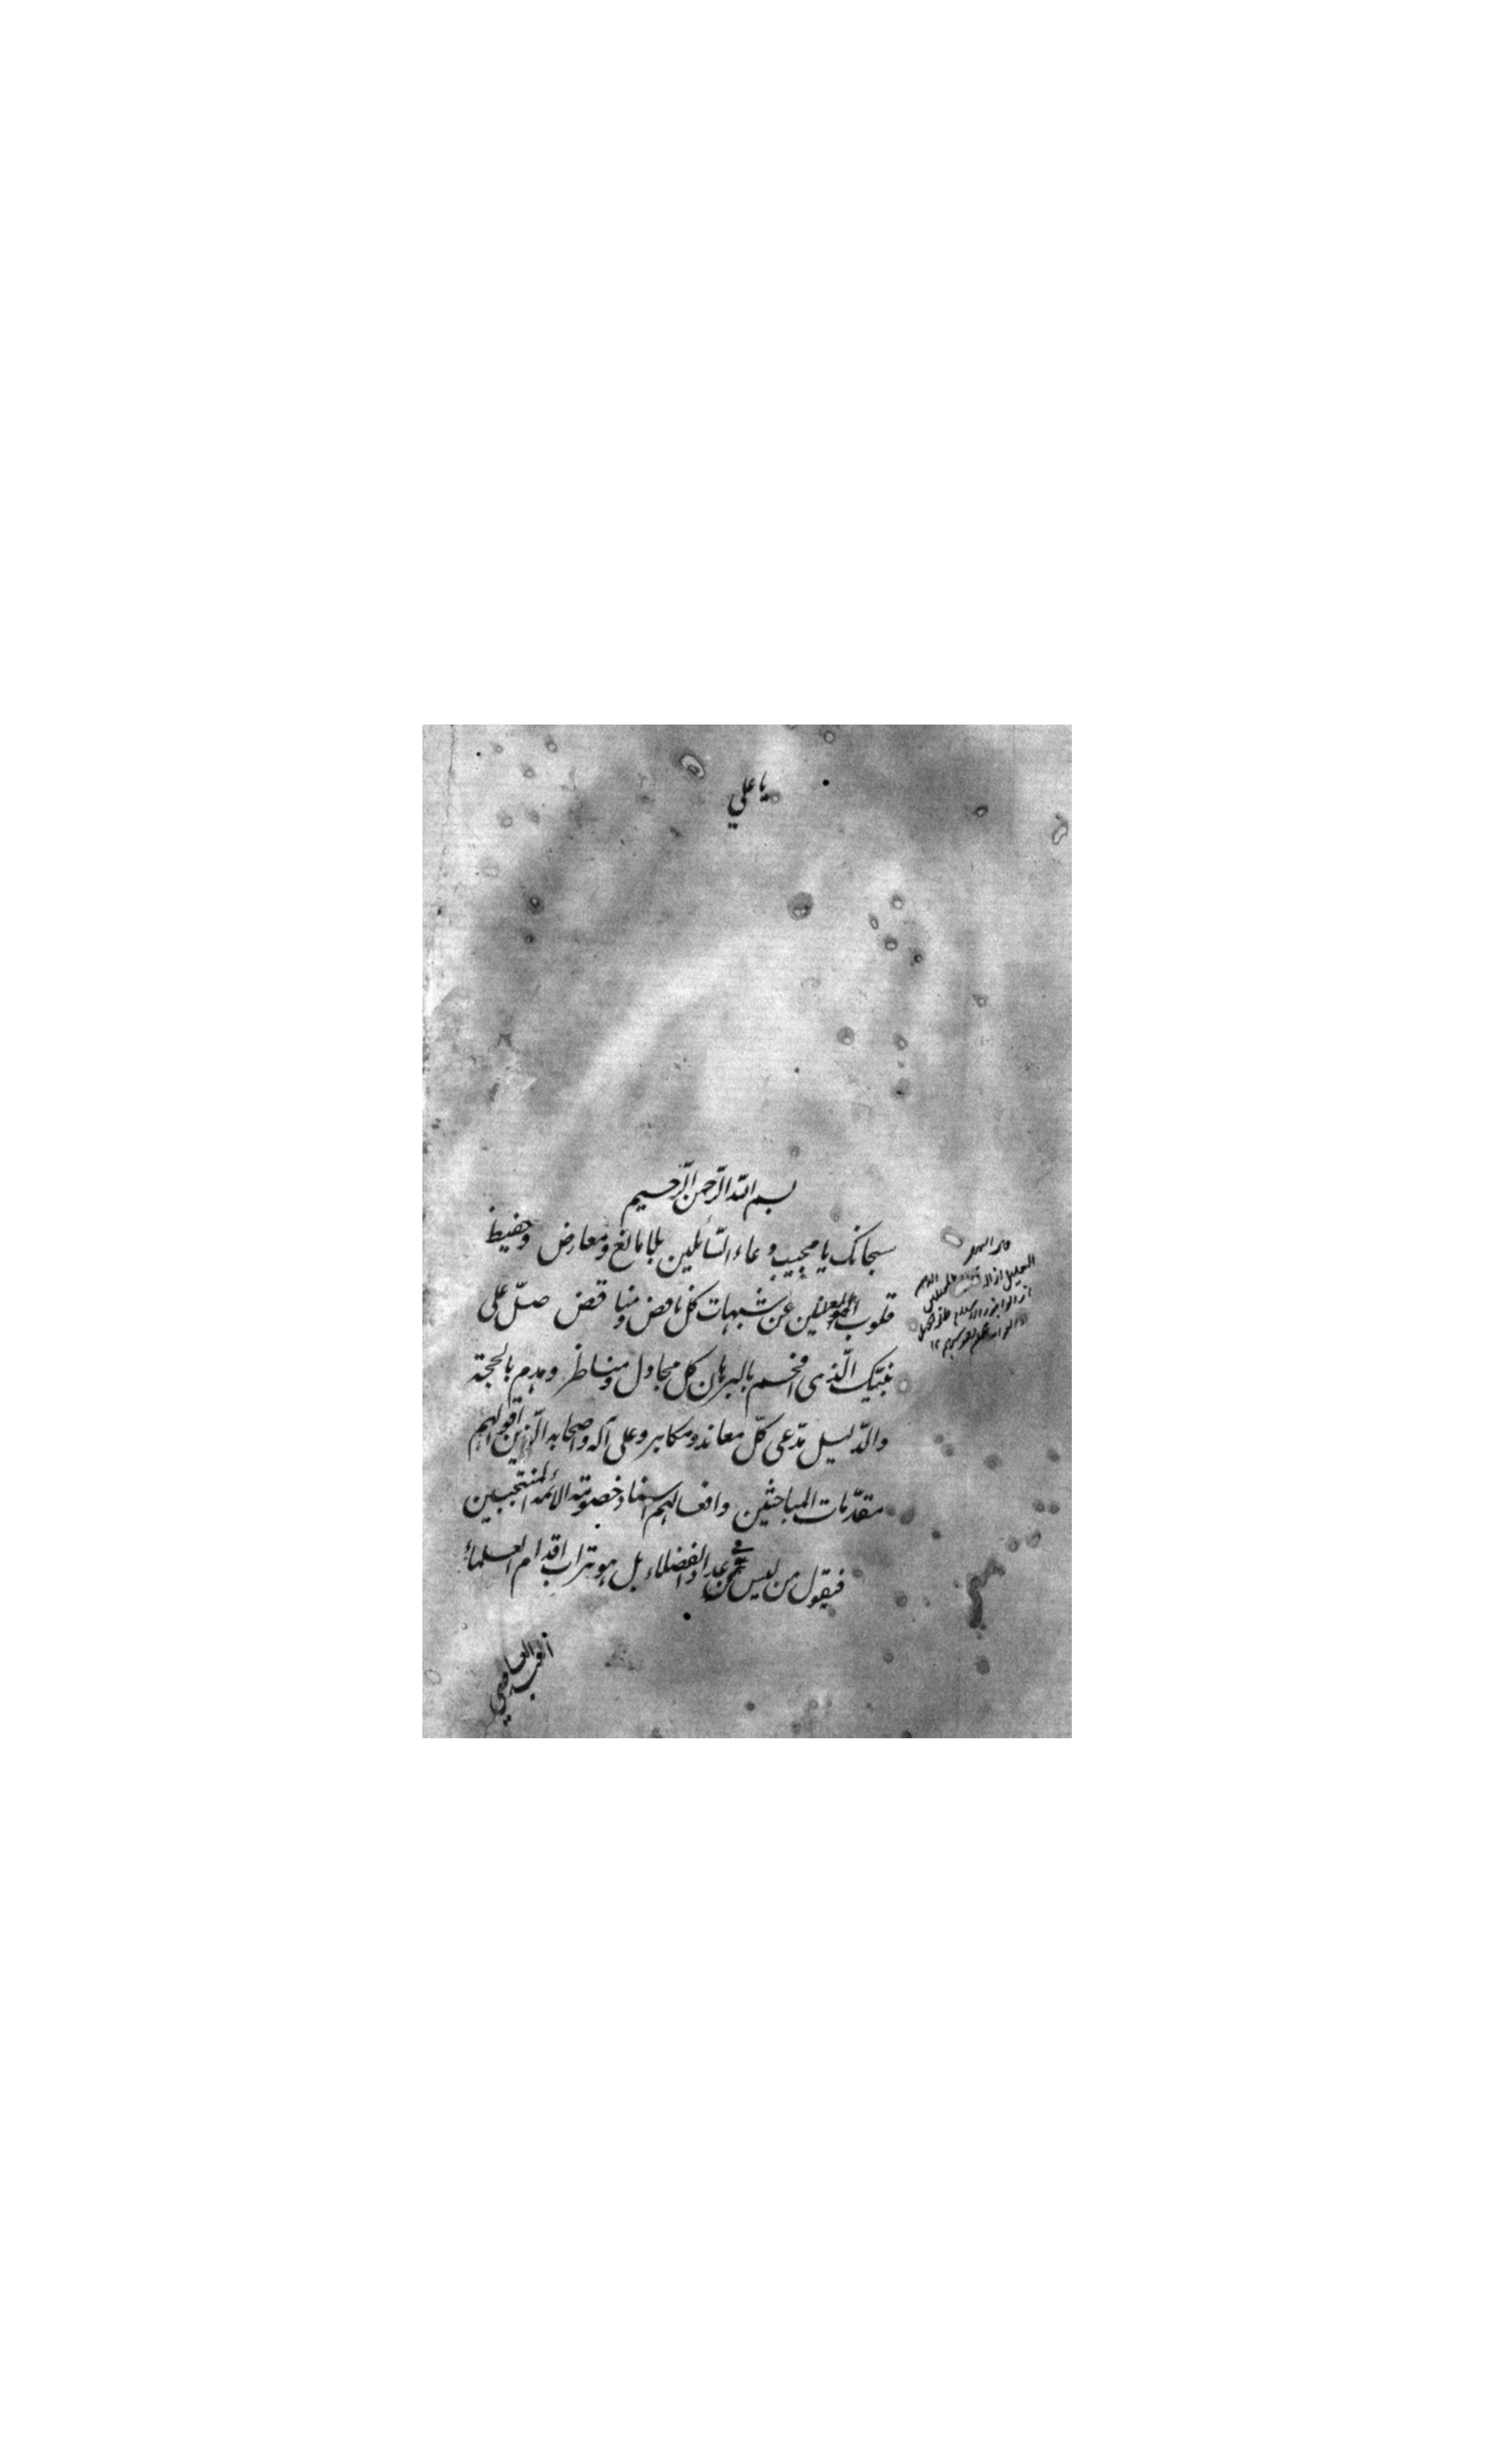 يا علي
بسم الله الرّحمن الرّحيم
سبحانك يا مجيب دعاء السّائلين بلا مانع ومعارض وحفيظ
قلوب المعلّلين عن شبهات كل ناقض ومناقض صلّ على
نبيّك الّذى افحم بالبرهان كل مجادل ومناظر وهدم بالحجة
والدّليل مدّعى كلّ معاند ومكابر وعلى آله واصحابه الّذين اقوالهم
مقدّمات المباحثين وافعالهم اسناد خصوصا الائمّة المنتجبين
فيقول من ليس فى عداد الفضلاء بل هو تراب اقدام العلماء
العبد العاصي